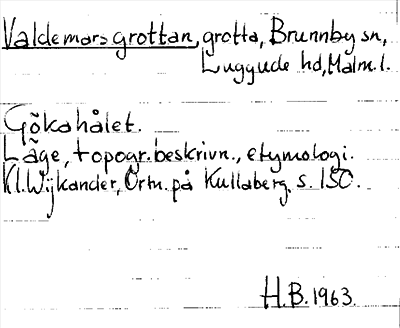 Valdemarsgrottan, grotta, Brunnby sn,
Luggude hd, Malm. l.
Gökahålet.
Läge, topogr. beskrivn., etymologi.
Kl. Wijkander, Ortn. på Kullaberg, s. 150.
H.B. 1963.